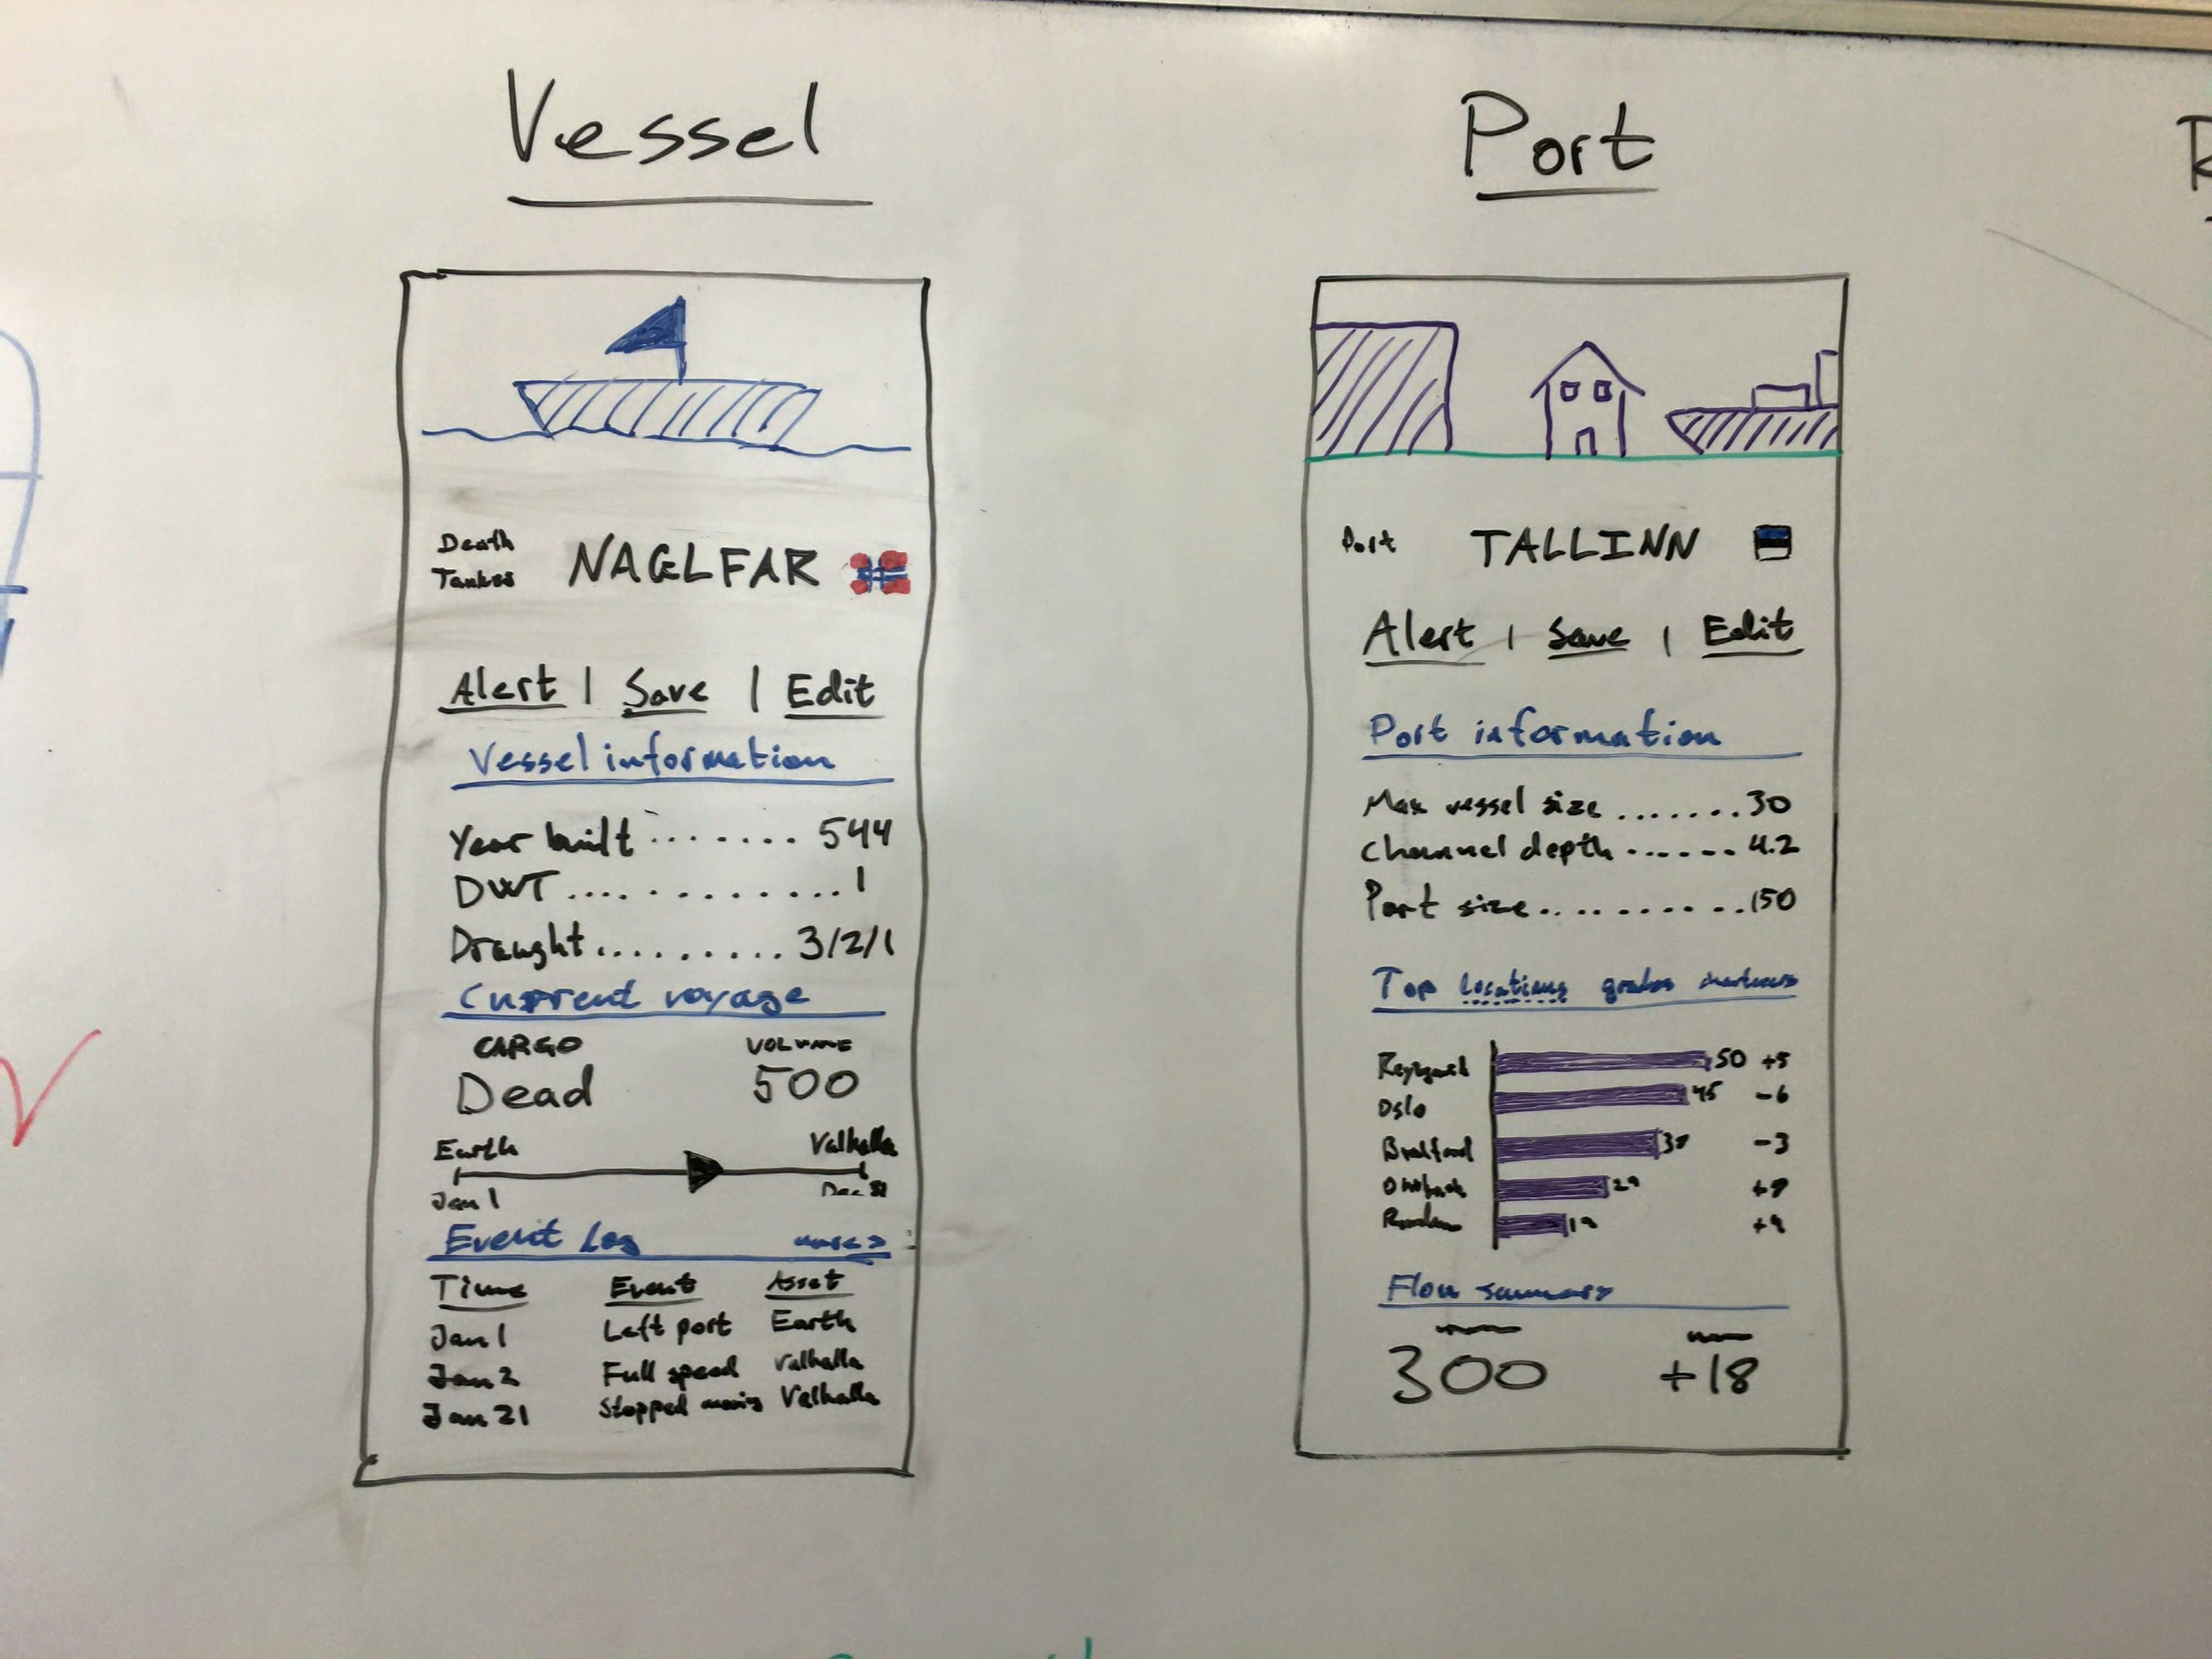 Vessel
Death
Tanker
NAGLFAR
Alert | Save | Edit
Vessel information
Year built ....... 544
DWT .............. 1
Draught .......... 3/2/1
Current voyage
CARGO VOLUME
Dead 500
Earth Valhalla
Jan 1 Dec 31
Event Log more >
Time Event Asset
Jan 1 Left port Earth
Jan 2 Full speed Valhalla
Jan 21 Stopped moving Valhalla
Port
Port TALLINN
Alert | Save | Edit
Port information
Max vessel size ....... 30
Channel depth ...... 4.2
Port size .......... 150
Top locations
50 +5
Oslo 45 -6
Bradford -3
29
Flow summary
300 +18